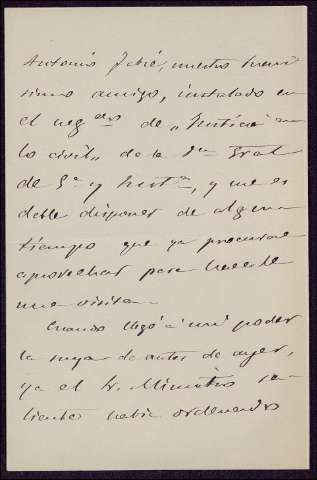 Antonio Fabié, nuestro buení
simo amigo, instalado en
el neg.do de "Justicia en
lo civil" de la Dón Gral
de G.a y Just.a, y me es
doble disponer de algun
tiempo que ya procuraré
aprovechar para hacerle
una visita.
Cuando llegó á mi poder
la suya de antes de ayer,
ya el Sr. Ministro sa-
liente había ordenado